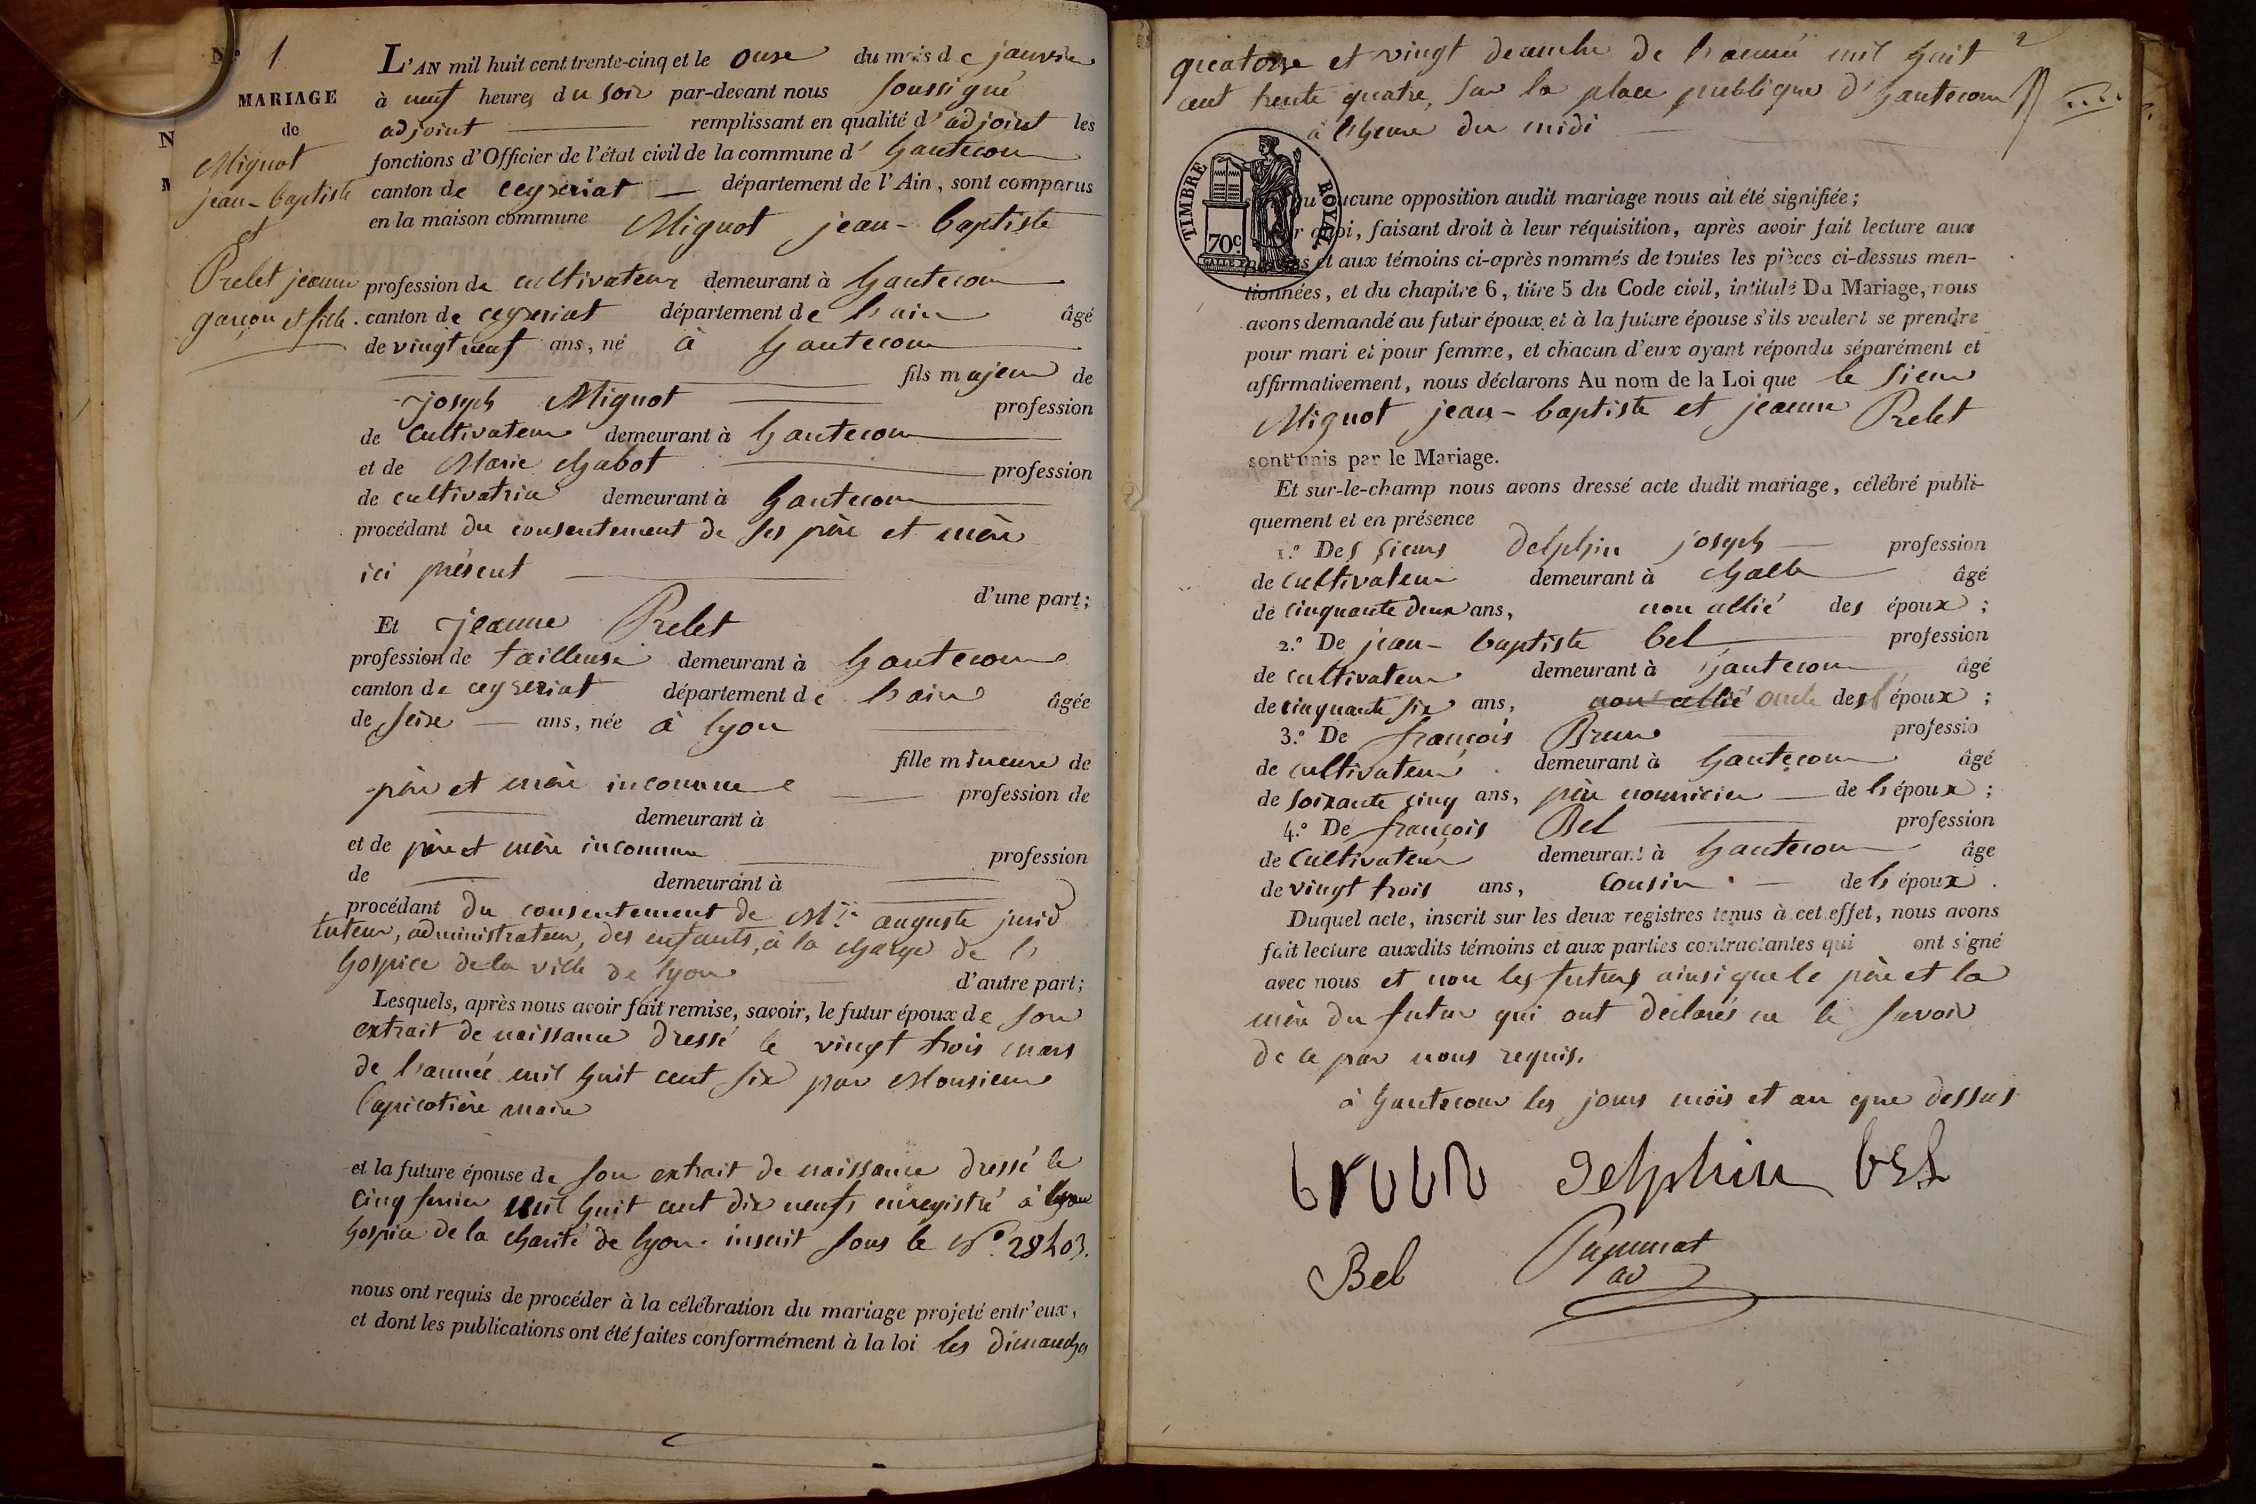 N° 1
MARIAGE
de
Mignot
jean-baptiste
et
Prelet jeanne
garçon et fille.
L'AN mil huit cent trente-cinq et le onse du mois de janvier
à neuf heures du soir par-devant nous soussigné
adjoint remplissant en qualité d'adjoint les
fonctions d'Officier de l'état civil de la commune d' hautecour
canton de ceyseriat département de l'Ain, sont comparus
en la maison commune Mignot jean-baptiste
profession de cultivateur demeurant à hautecour
canton de ceyseriat département de l'ain âgé
de vingt neuf ans, né à hautecour
fils majeur de
joseph Mignot profession
de cultivateur demeurant à hautecour
et de Marie chabot profession
de cultivatrice demeurant à hautecour
procédant du consentement de ses père et mère
ici présent
d'une part;
Et jeanne Prelet
profession de tailleuse demeurant à hautecour
canton de ceyseriat département de l'ain âgée
de seise ans, née à lyon
fille mineure de
père et mère inconnue profession de
demeurant à
et de père et mère inconnu profession
de demeurant à
procédant du consentement de Mr. auguste
tuteur, administrateur, des enfants, à la charge de l'
hospice de la ville de lyon d'autre part;
Lesquels, après nous avoir fait remise, savoir, le futur époux de son
extrait de naissance dressé le vingt trois mars
de l'année mil huit cent six par Monsieur
Capicotière maire
et la future épouse de son extrait de naissance dressé le
cinq fevrier mil huit cent dix neuf, enregistré à lyon
hospice de la charité de lyon. inscrit sous le N°. 28403.
nous ont requis de procéder à la célébration du mariage projeté entr'eux,
et dont les publications ont été faites conformément à la loi les dimanches
2
quatorse et vingt deambre de l'année mil huit
cent trente quatre, sur la place publique d'hautecour
à l'heure du midi
TIMBRE ROYAL
70c.
aucune opposition audit mariage nous ait été signifiée;
quoi, faisant droit à leur réquisition, après avoir fait lecture aux
parties et aux témoins ci-après nommés de toutes les pièces ci-dessus men-
tionnées, et du chapitre 6, titre 5 du Code civil, intitulé Du Mariage, nous
avons demandé au futur époux et à la future épouse s'ils veulent se prendre
pour mari et pour femme, et chacun d'eux ayant répondu séparément et
affirmativement, nous déclarons Au nom de la Loi que le sieur
Mignot jean-baptiste et jeanne Prelet
sont unis par le Mariage.
Et sur-le-champ nous avons dressé acte dudit mariage, célébré publi-
quement et en présence
1.° Des sieurs delphin joseph profession
de cultivateur demeurant à challe âgé
de cinquante deux ans, non allié des époux;
2.° De jean-baptiste bel profession
de cultivateur demeurant à hautecour âgé
de cinquante six ans, non allié oncle de l'époux;
3.° De françois Brun professio
de cultivateur demeurant à hautecour âgé
de soixante cinq ans, père nourricier de l'époux;
4.° De françois Bel profession
de cultivateur demeurant à hautecour âge
de vingt trois ans, cousin de l'époux.
Duquel acte, inscrit sur les deux registres tenus à cet effet, nous avons
fait lecture auxdits témoins et aux parties contractantes qui ont signé
avec nous et non les futurs ainsi que le père et la
mère du futur qui ont déclarés ne le savoir
de ce par nous requis.
à hautecour les jours mois et an que dessus
delphin bel
Bel
ad